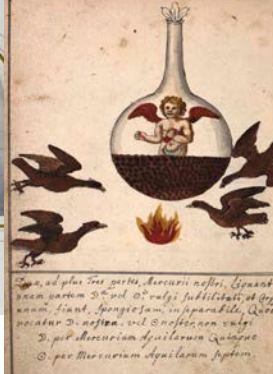 ad plus Tres partes, Mercurii nostri, Liquant
unam partem D.ᵃᵉ vel vulgi subtilitati, et
unam, fiant, Spongiosam, inseparabile,
vocatur D. nostra, vel ☉ noster, non vulgi
D. per Mercurium Aquilarum Quinque
☉. per Mercurium Aquilarum septem,